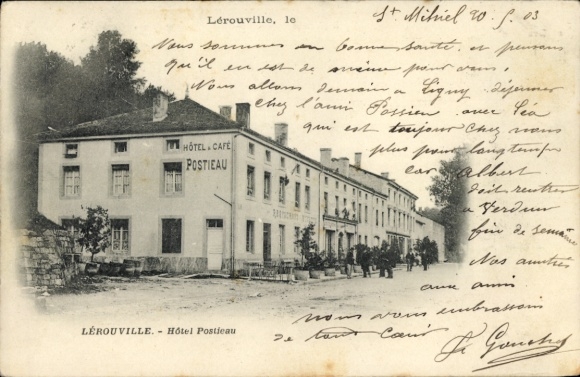 Lérouville, le
St Mihiel 20-5-03
Nous sommes en bonne santé et pensons
qu'il en est de même pour vous,
Nous allons demain à Ligny déjeuner
chez l'ami Possien avec Léa
qui est toujours chez nous
plus pour longtemps
car Albert
doit rentrer
à Verdun
fin de semaine
Nos amitiés
aux amis
nous vous embrassons
de tout cœur
HÔTEL & CAFÉ
POSTIEAU
LÉROUVILLE. - Hôtel Postieau